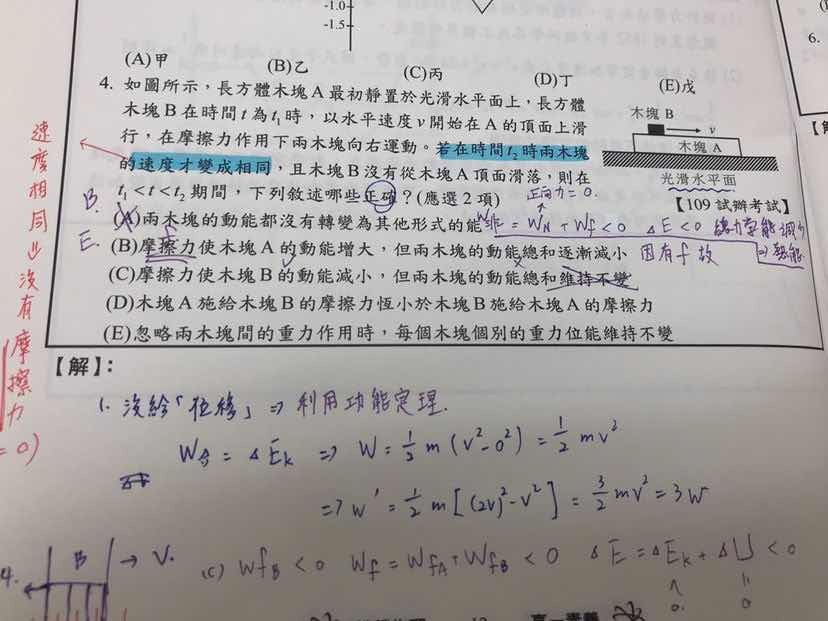 -1.0
-1.5
(A)甲 (B)乙 (C)丙 (D)丁 (E)戊
6.
4. 如圖所示，長方體木塊 A 最初靜置於光滑水平面上，長方體
木塊 B 在時間 t 為 t₁ 時，以水平速度 v 開始在 A 的頂面上滑
行，在摩擦力作用下兩木塊向右運動。若在時間 t₂ 時兩木塊
的速度才變成相同，且木塊 B 沒有從木塊 A 頂面滑落，則在
t₁ < t < t₂ 期間，下列敘述哪些正確？(應選 2 項)
木塊 B
v
木塊 A
光滑水平面
正向力 = 0.
【109 試辦考試】
B.
E.
(A)兩木塊的動能都沒有轉變為其他形式的能
= W_N + Wf < 0 ΔE < 0
(B)摩擦力使木塊 A 的動能增大，但兩木塊的動能總和逐漸減小
因有 f 故
(C)摩擦力使木塊 B 的動能減小，但兩木塊的動能總和維持不變
(D)木塊 A 施給木塊 B 的摩擦力恆小於木塊 B 施給木塊 A 的摩擦力
(E)忽略兩木塊間的重力作用時，每個木塊個別的重力位能維持不變
速度相同 ⇒ 沒有摩擦力
= 0)
【解】：
1. 沒給「位移」⇒ 利用功能定理.
= ΔEk ⇒ W = ½ m (v² - 0²) = ½ mv²
⇒ W' = ½ m [(2v)² - v²] = 3/2 mv² = 3W
4.
B → V.
(C) Wf_B < 0 Wf = Wf_A + Wf_B < 0 ΔE = ΔEk + ΔU < 0
0. 0